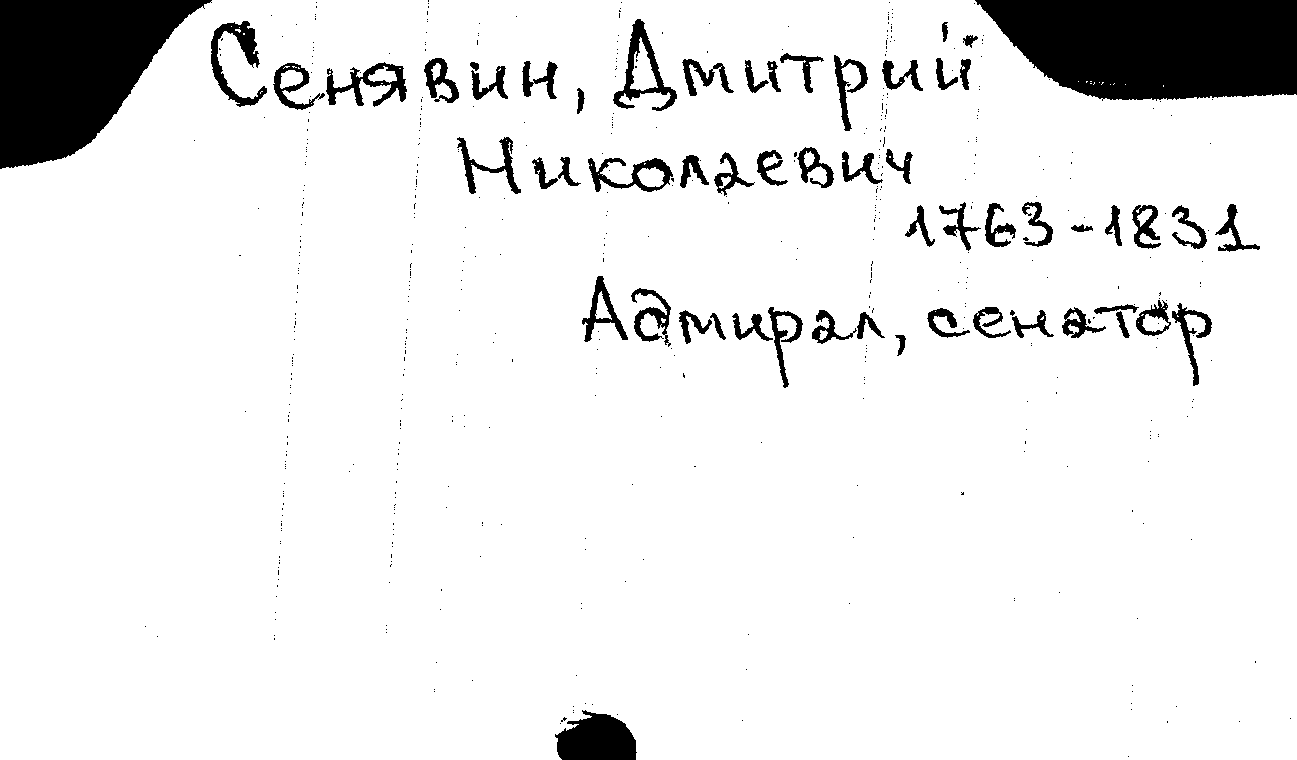 Сенявин, Дмитрий
Николаевич
1763-1831
Адмирал, сенатор